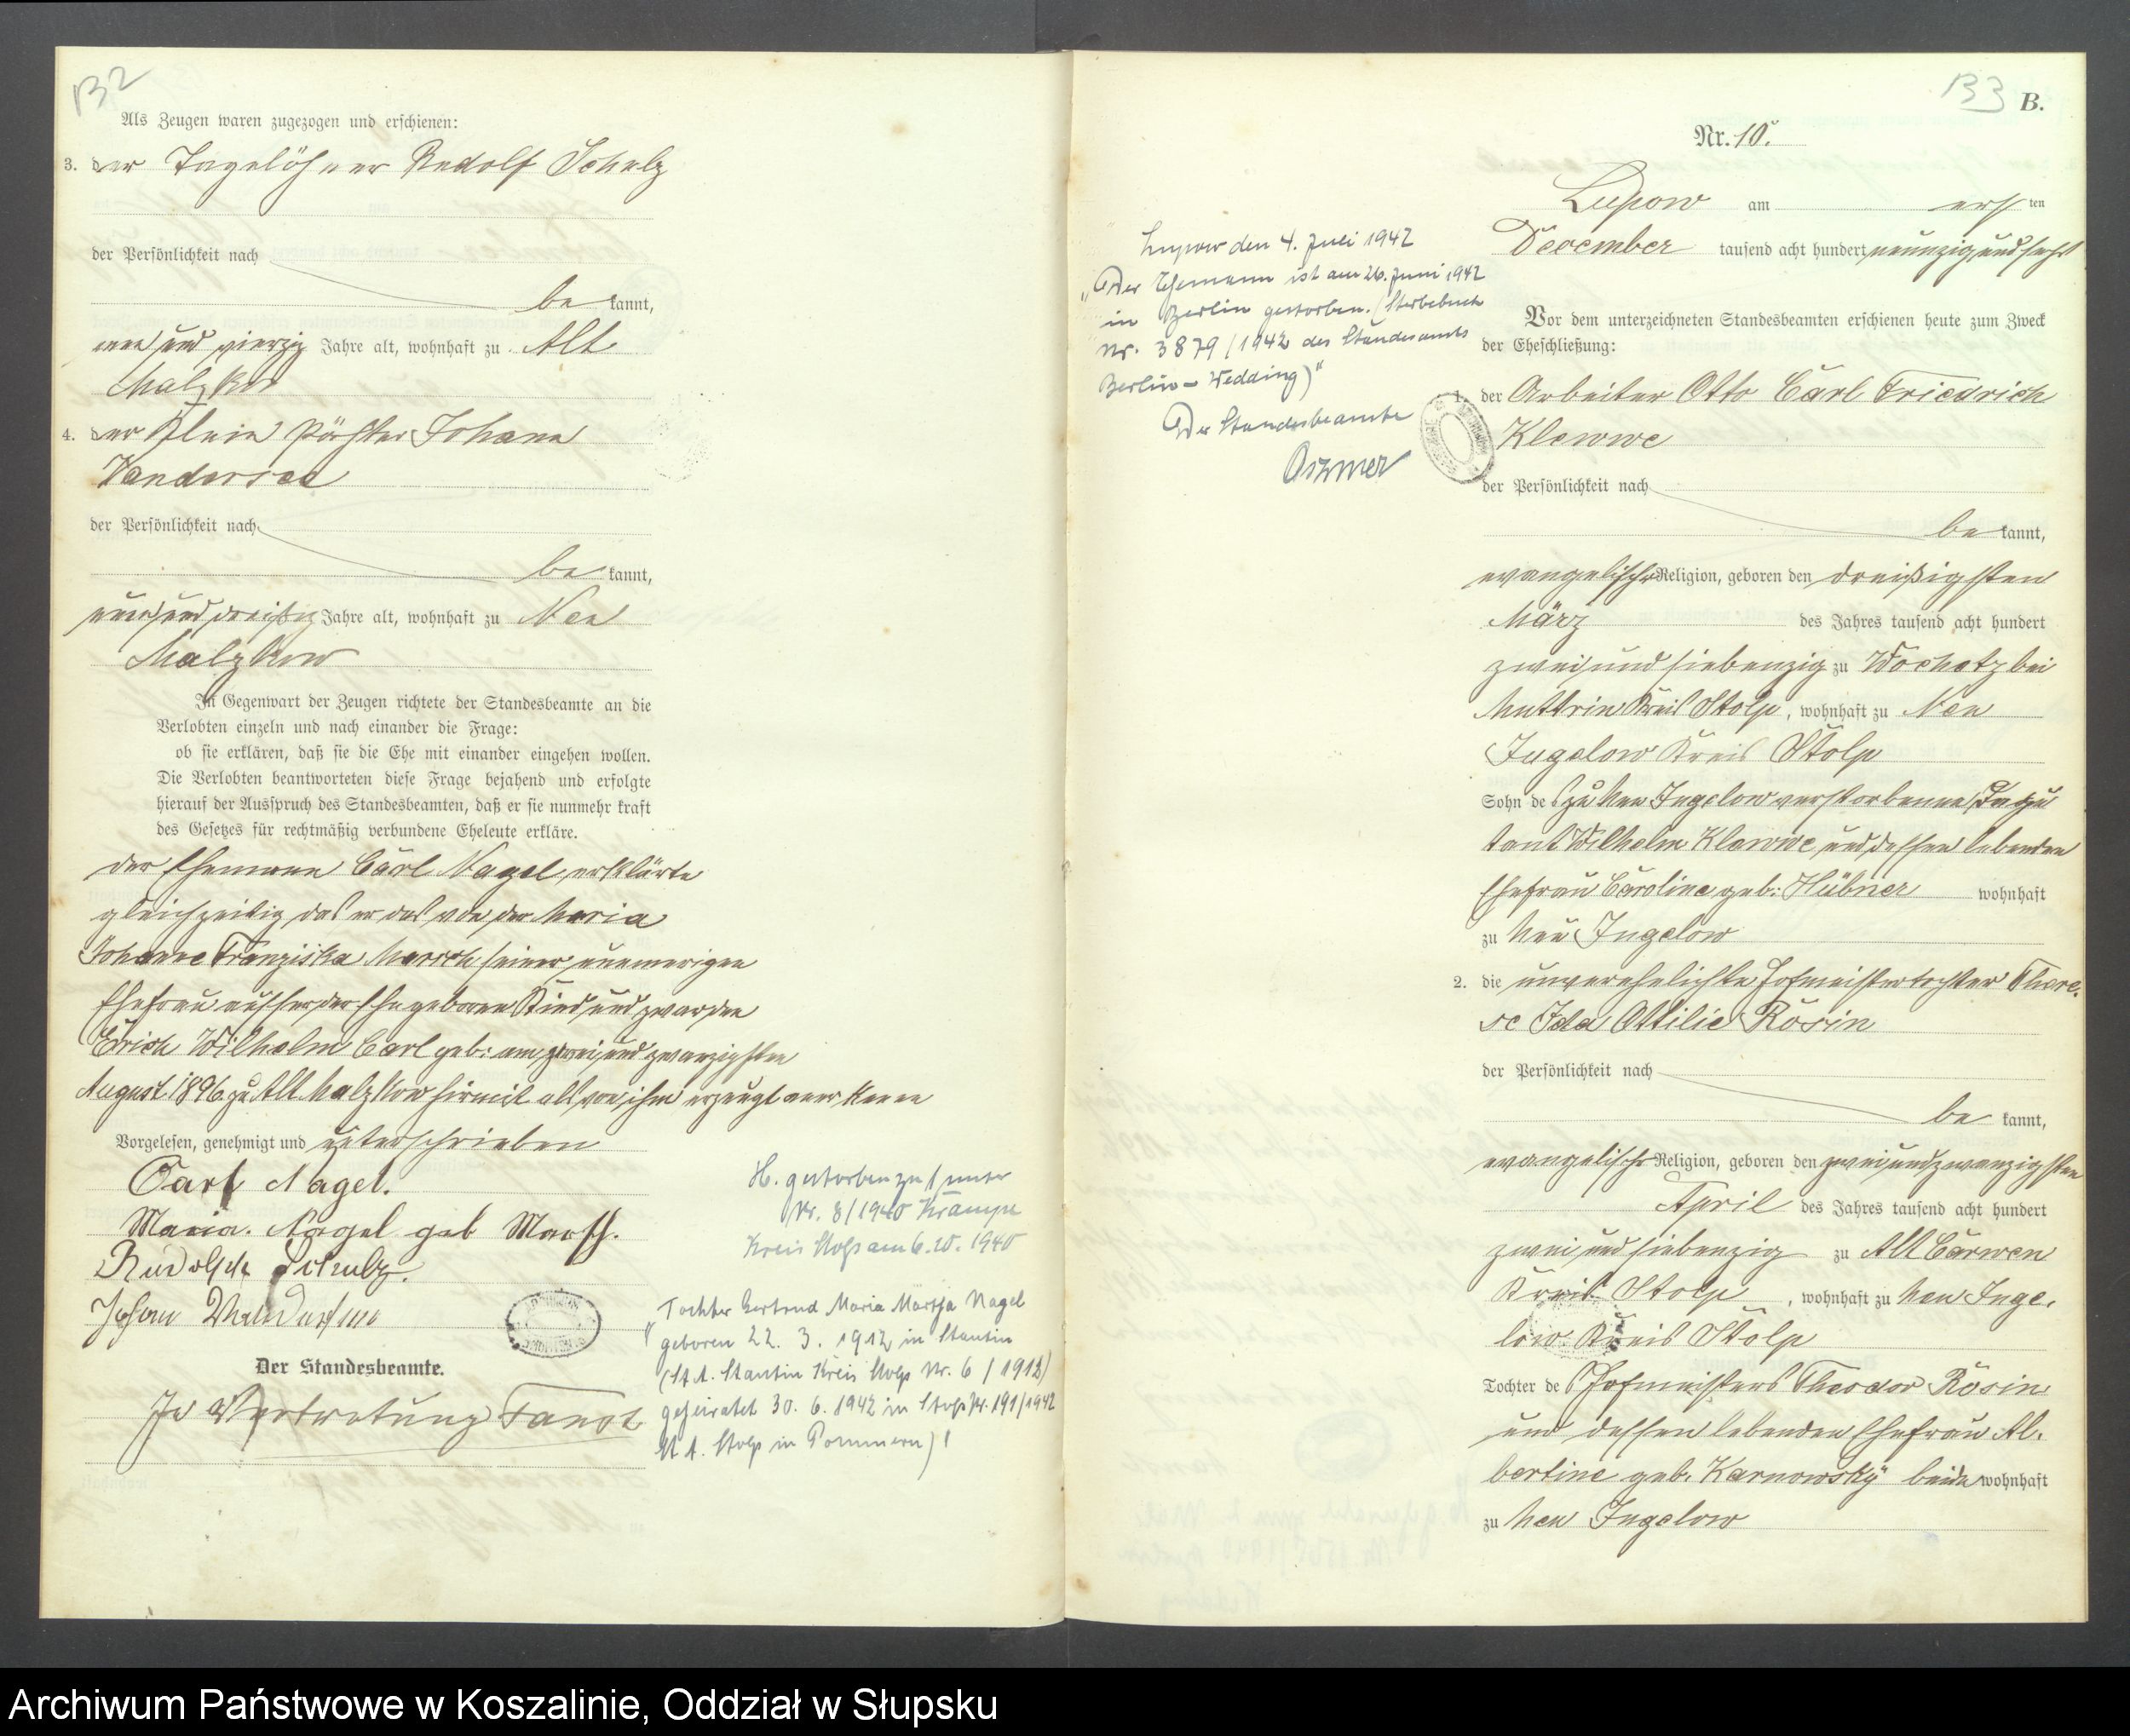 132
Als Zeugen waren zugezogen und erschienen:
3. der Tagelöhner Rudolf Schulz
der Persönlichkeit nach
be kannt,
und vierzig Jahre alt, wohnhaft zu Alt
Malzkow
4. der Klein Pächter Johann
Vandersee
der Persönlichkeit nach
be kannt,
neun und dreißig Jahre alt, wohnhaft zu Neu
Malzkow
In Gegenwart der Zeugen richtete der Standesbeamte an die
Verlobten einzeln und nach einander die Frage:
ob sie erklären, daß sie die Ehe mit einander eingehen wollen.
Die Verlobten beantworteten diese Frage bejahend und erfolgte
hierauf der Ausspruch des Standesbeamten, daß er sie nunmehr kraft
des Gesetzes für rechtmäßig verbundene Eheleute erkläre.
der Ehemann Carl Nagel erklärte
gleichzeitig das er das von der Maria
Johanne Franziska seiner nunmerigen
Ehefrau ausser der Ehe geborene Kind und zwar den
Erich Wilhelm Carl geb: am zwei und zwanzigsten
August 1896 zu Alt Malzkow hirmit als von ihm erzeugt anerkenne
Vorgelesen, genehmigt und unterschrieben
Carl Nagel.
Maria. Nagel geb
Rudolf Schulz.
Johann
Der Standesbeamte.
In Vertretung
H. gestorben zu unter
Nr. 8/1940 Krampe
Kreis Stolp am 6.10.1940
"Tochter Gertrud Maria Nagel
geboren 22. 3. 1912 in Stantin
(St.A. Stantin Kreis Stolp Nr. 6/1912)
geheiratet 30. 6. 1942 in Stolp Nr. 191/1942
St.A. Stolp in Pommern)"
133
B.
Nr. 10.
Lupow am ersten
December tausend acht hundert neunzig und sechs
Vor dem unterzeichneten Standesbeamten erschienen heute zum Zweck
der Eheschließung:
1. der Arbeiter Otto Carl Friedrich
Klewwe
der Persönlichkeit nach
be kannt,
evangelischer Religion, geboren den dreißigsten
März des Jahres tausend acht hundert
zwei und siebenzig zu Wochotz bei
Muttrin Kreis Stolp, wohnhaft zu Neu
Jugelow Kreis Stolp
Sohn des zu Neu Jugelow verstorbenen Depu
tant Wilhelm Klewwe und dessen lebenden
Ehefrau Caroline geb: Hübner wohnhaft
zu Neu Jugelow
2. die unverehelichte Hofmeistertochter There-
se Ida Ottilie Rosin
der Persönlichkeit nach
be kannt,
evangelischer Religion, geboren den zwei und zwanzigsten
April des Jahres tausend acht hundert
zwei und siebenzig zu Alt Carwen
Kreis Stolp, wohnhaft zu Neu Juge-
low Kreis Stolp
Tochter des Hofmeisters Theodor Rosin
und dessen lebenden Ehefrau Al-
bertine geb. Karnowsky beide wohnhaft
zu Neu Jugelow
Lupow den 4. Juli 1942
"Der Ehemann ist am 26. Juni 1942
in Berlin gestorben. (Sterbebuch
Nr. 3879/1942 des Standesamts
Berlin-Wedding)"
Der Standesbeamte
Archiwum Państwowe w Koszalinie, Oddział w Słupsku